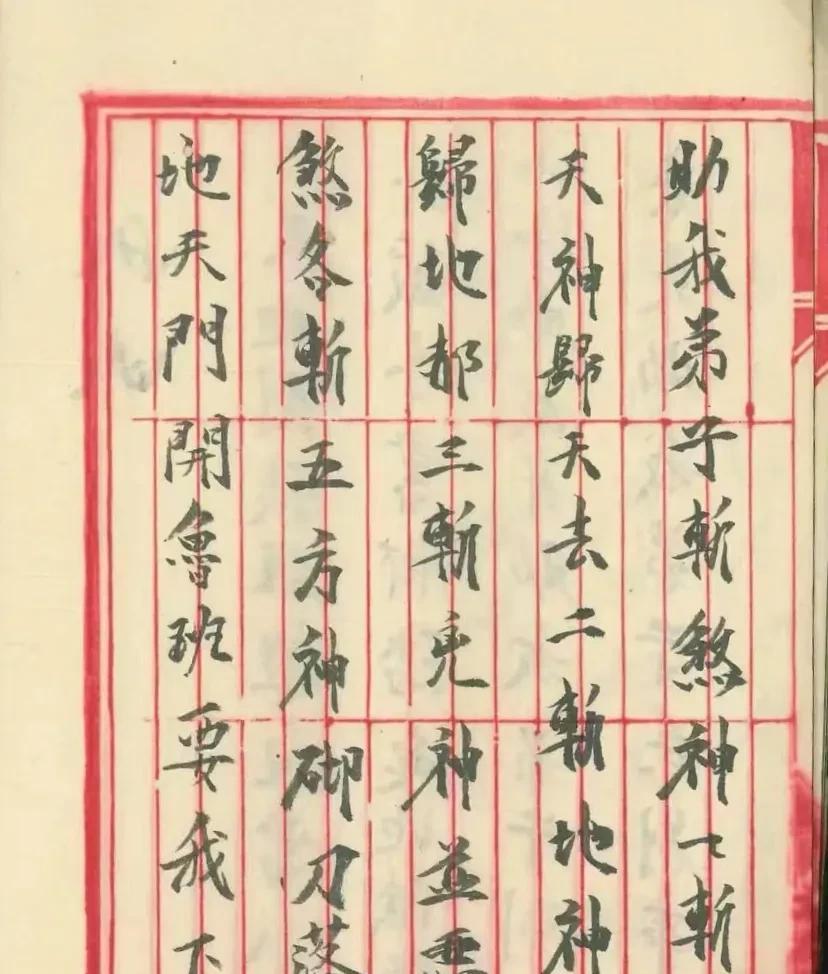 助我弟子斬煞神一斬
天神歸天去二斬地神
歸地部三斬兇神並惡
煞各斬五方神砌刀落
地天門開魯班要我下